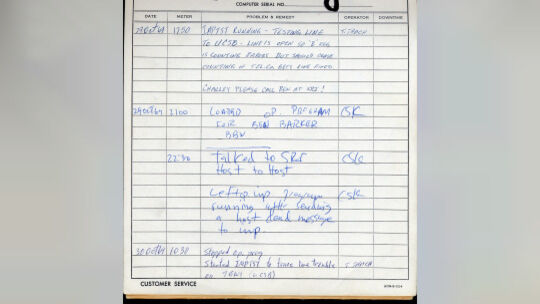 COMPUTER SERIAL NO.
DATE METER PROBLEM & REMEDY OPERATOR DOWNTIME
29OCT69 1730 IMPTST RUNNING - TESTING LINE
TO UCSB - LINE IS OPEN SO 'E' REG
IS COUNTING ERRORS BUT SHOULD STOP
COUNTING IF TELCO GETS LINE FIXED.
CHARLEY PLEASE CALL BEN AT
29OCT69 2100 LOADED OP. PROGRAM CSK
FOR BEN BARKER
BBN
22:30 Talked to SRI CSK
Host to Host
Left op. imp. program CSK
running after sending
a host dead message
to imp.
30 OCT 69 stopped op. prog
Started IMPTST to trace line trouble
on (UCSB)
CUSTOMER SERVICE